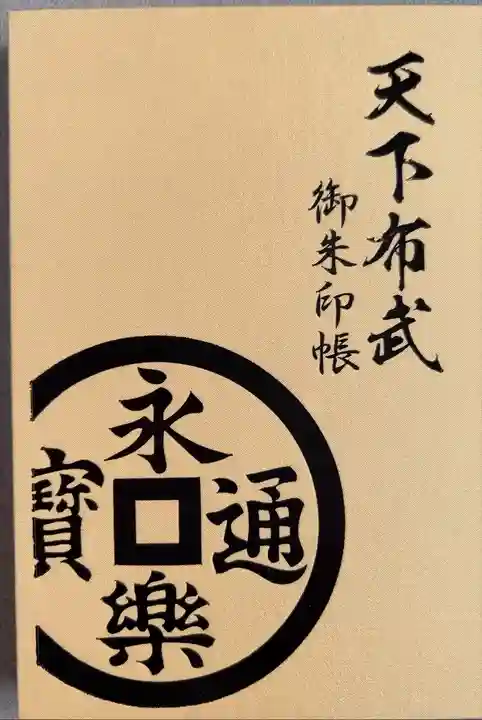 天下布武
御朱印帳
永樂通寳